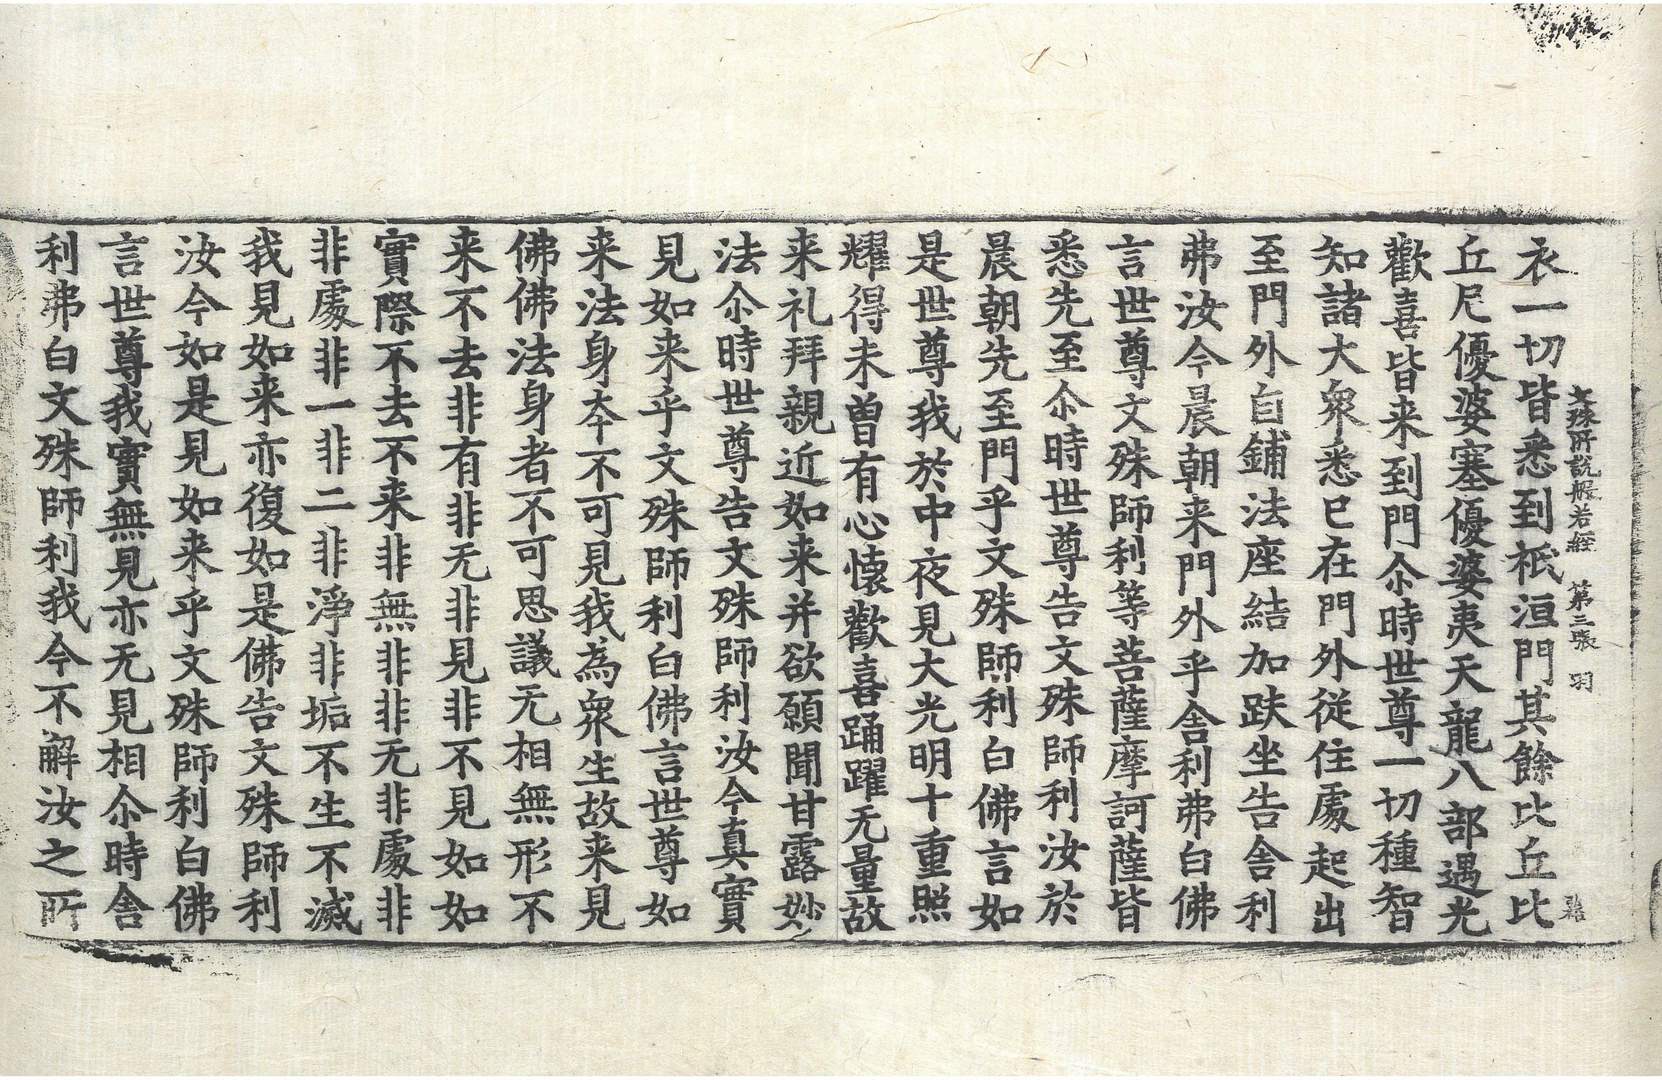 文殊所說般若經　第三張　羽
衣一切皆悉到祇洹門其餘比丘比
丘尼優婆塞優婆夷天龍八部遇光
歡喜皆来到門尒時世尊一切種智
知諸大衆悉已在門外從住處起出
至門外自鋪法座結加趺坐告舍利
弗汝今晨朝来門外乎舍利弗白佛
言世尊文殊師利等菩薩摩訶薩皆
悉先至尒時世尊告文殊師利汝於
晨朝先至門乎文殊師利白佛言如
是世尊我於中夜見大光明十重照
耀得未曾有心懷歡喜踊躍无量故
来礼拜親近如来并欲願聞甘露妙
法尒時世尊告文殊師利汝今真實
見如来乎文殊師利白佛言世尊如
来法身夲不可見我為衆生故来見
佛佛法身者不可思議无相無形不
来不去非有非无非見非不見如如
實際不去不来非無非非无非處非
非處非一非二非淨非垢不生不滅
我見如来亦復如是佛告文殊師利
汝今如是見如来乎文殊師利白佛
言世尊我實無見亦无見相尒時舍
利弗白文殊師利我今不解汝之所